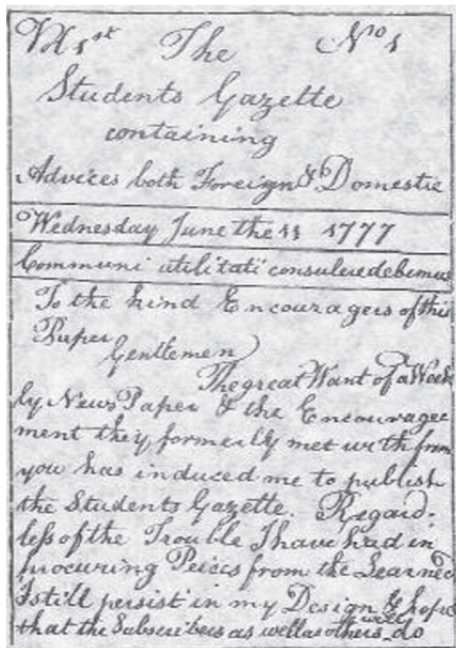 Vol 1st The No 1
Students Gazette
containing
Advices both Foreign & Domestic
Wednesday June the 11 1777
Communi utilitati consulere debemus
To the kind Encouragers of this
Paper
Gentlemen
The great Want of a Week
ly News Paper & the Encourage
ment they formerly met with from
you has induced me to publish
the Students Gazette. Regard:
less of the Trouble I have had in
procuring Peices from the Learned
I still persist in my Design & hope
that the Subscribers as well as others will do